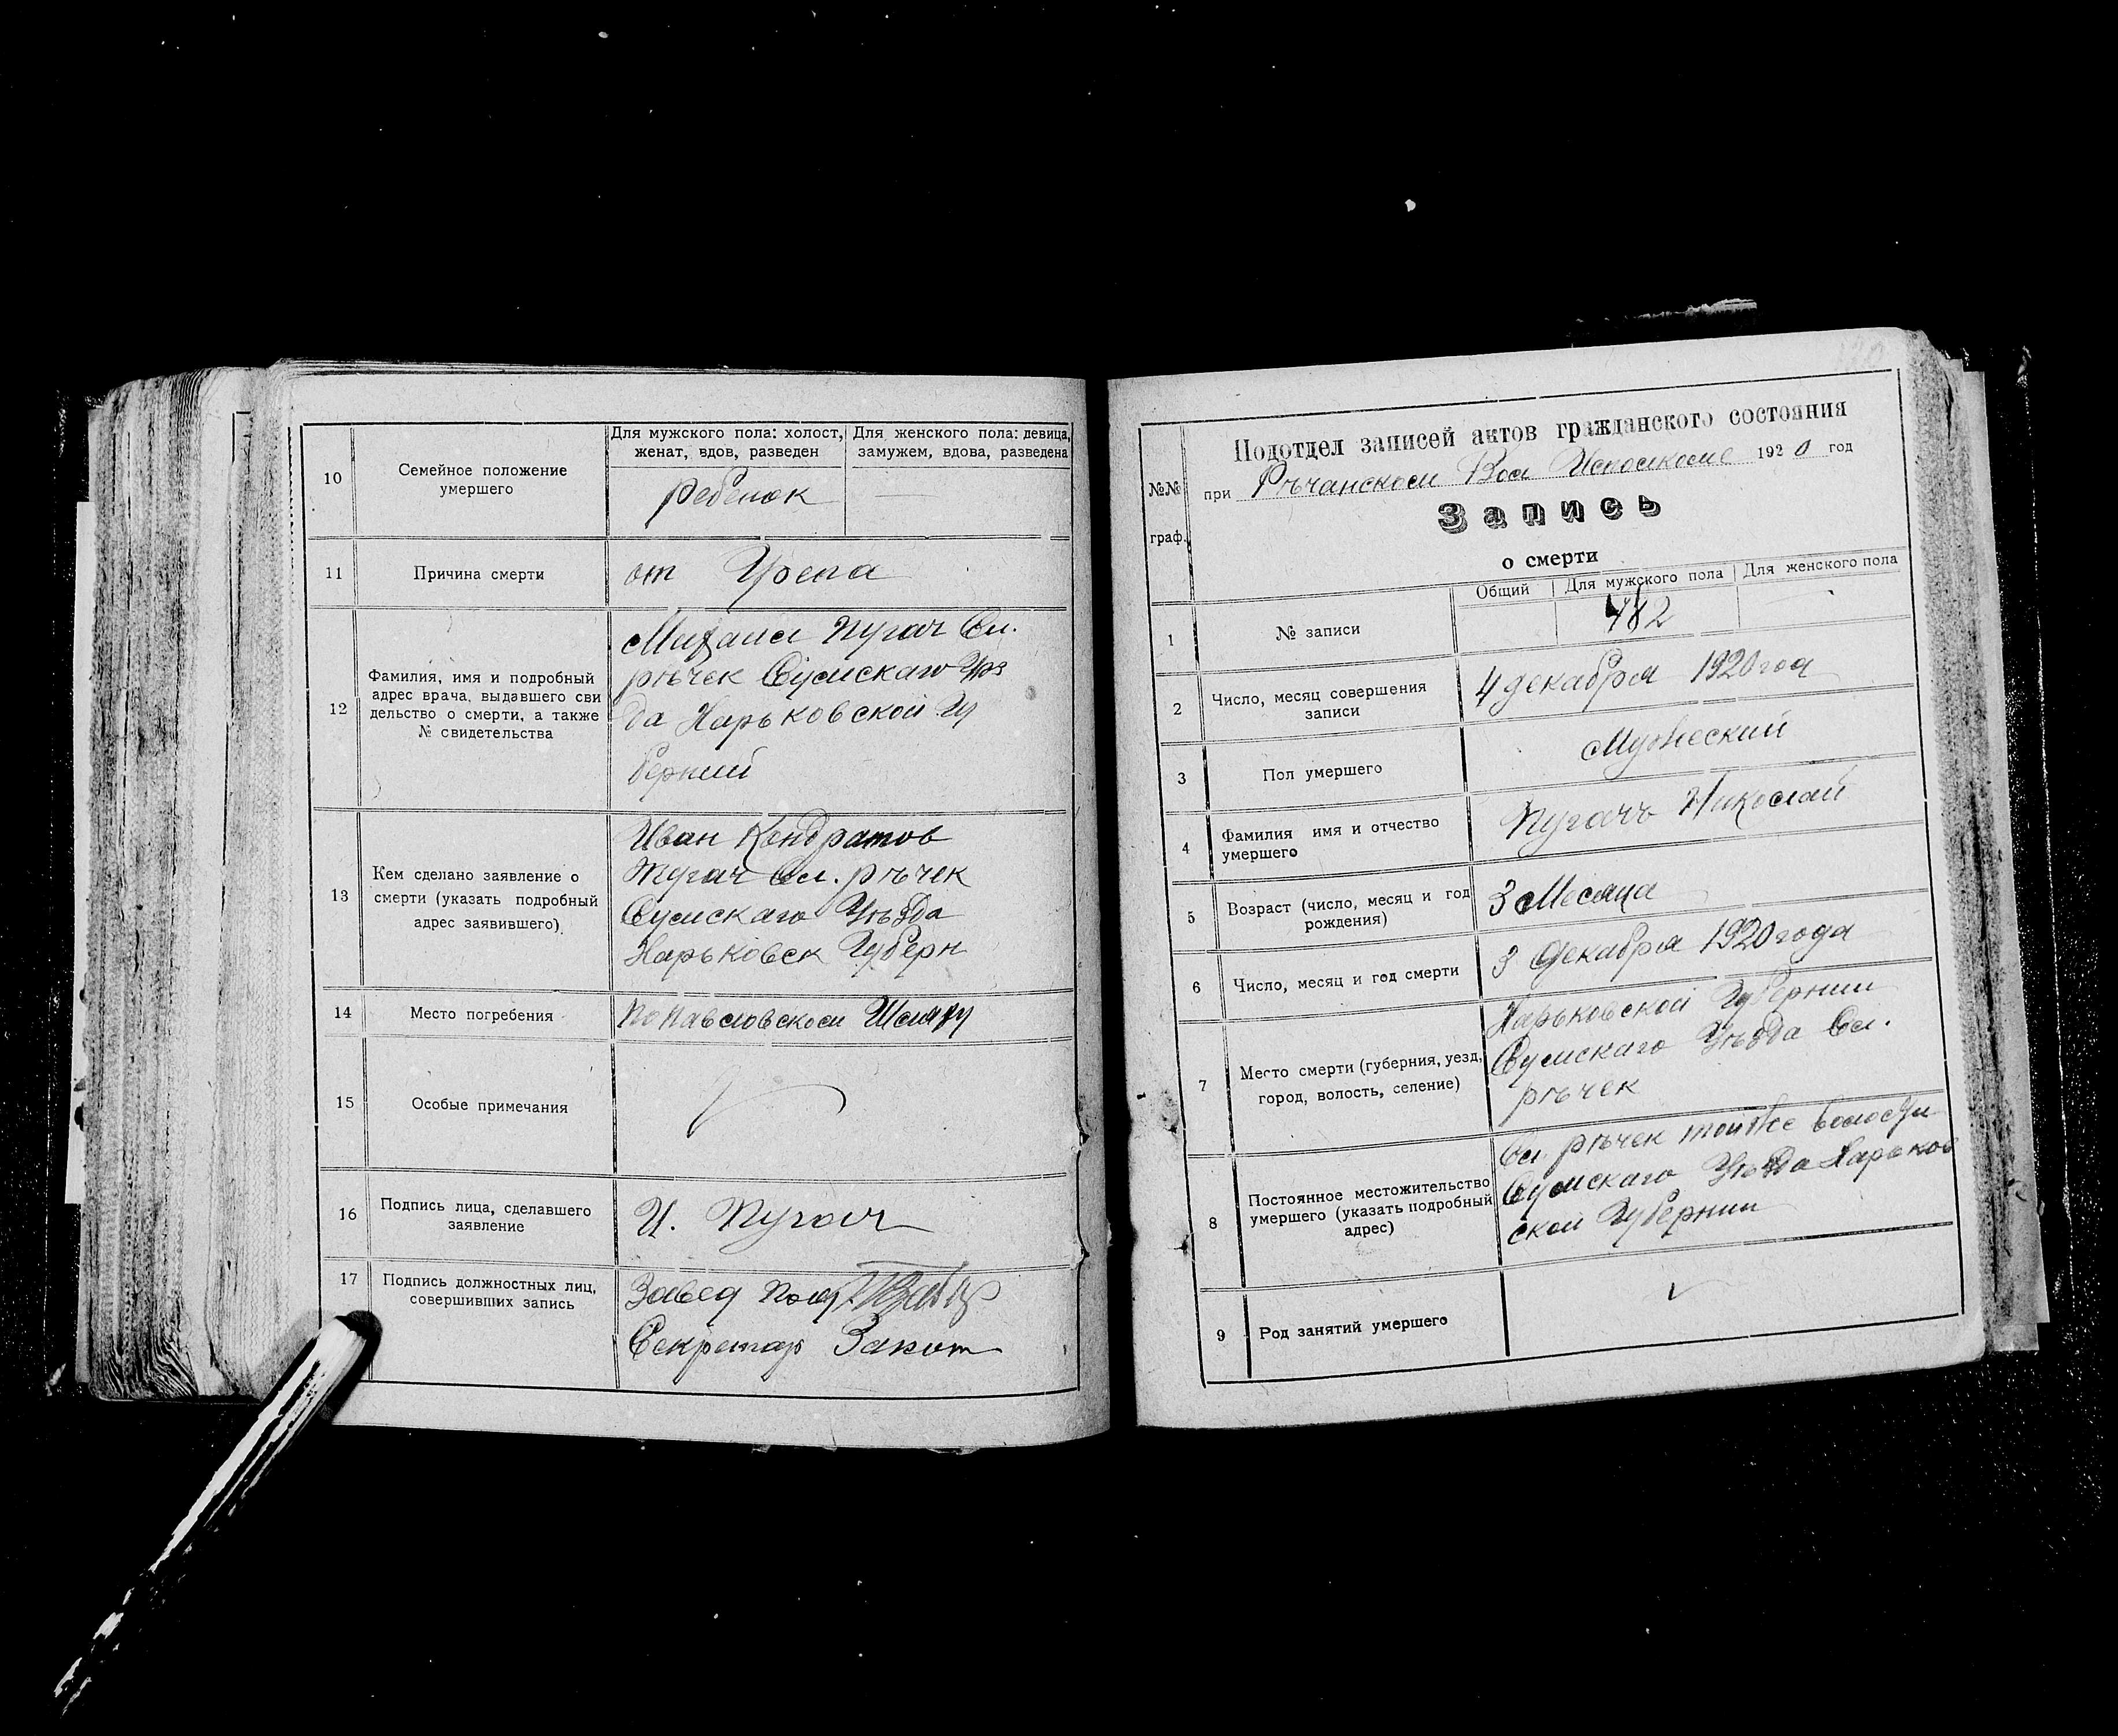 10
Семейное положение
умершего
Для мужского пола: холост,
женат, вдов, разведен
Для женского пола: девица,
замужем, вдова, разведена
Ребенок
11
Причина смерти
от
12
Фамилия, имя и подробный
адрес врача, выдавшего сви
дельство о смерти, а также
№ свидетельства
Пугач Сл.
рѣчек Сумскаго
да Харьковской Гу
бернии
13
Кем сделано заявление о
смерти (указать подробный
адрес заявившего)
Иван Кондратов
Пугач Сл. рѣчек
Сумскаго Уѣзда
Харьковск Губерн
14
Место погребения
По Павловском
15
Особые примечания
16
Подпись лица, сделавшего
заявление
И. Пугач
17
Подпись должностных лиц,
совершивших запись
Завед
Секретар
№№
граф.
Подотдел записей актов гражданского состояния
при Рѣчанском Вол Исполкоме 1920 год
Запись
о смерти
Общий
Для мужского пола
Для женского пола
1
№ записи
2
Число, месяц совершения
записи
4 декабря 1920 год
3
Пол умершего
Мужеский
4
Фамилия имя и отчество
умершего
Пугачъ Николай
5
Возраст (число, месяц и год
рождения)
3 Месяца
6
Число, месяц и год смерти
3 Декабря 1920 года
7
Место смерти (губерния, уезд,
город, волость, селение)
Харьковской Губернии
Сумскаго Уѣзда Сл.
рѣчек
8
Постоянное местожительство
умершего (указать подробный
адрес)
Сл. рѣчек той же волости
Сумскаго Уѣзда Харьков
ской Губернии
9
Род занятий умершего